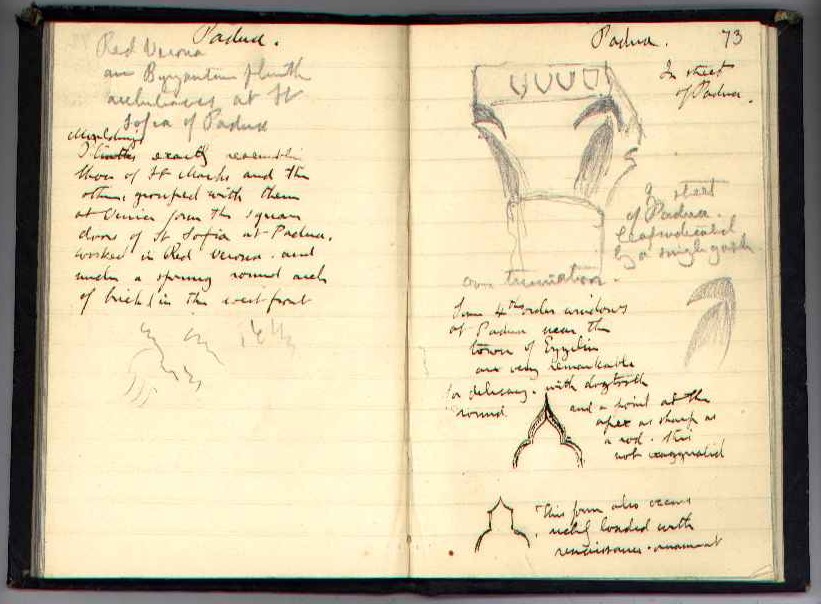 Padua.
Red Verona
are Byzantine plinth
at St
Sofia of Padua
Mouldings
Plinths exactly resembling
those of St Marks and the
others grouped with them
at Venice form the square
doors of St Sofia at Padua.
worked in Red Verona. and
under a springing round arch
of brick in the west front
Padua. 73
In street
of Padua.
In street
of Padua.
Leaf indicated
by a single gash
own truncation.
Some 4th order windows
at Padua near the
tower of Ezzelin
are very remarkable
for delicacy. with dogtooth
round. and a point at the
apex as sharp as
a rod. this
not exaggerated
This form also occurs
richly loaded with
renaissance ornament